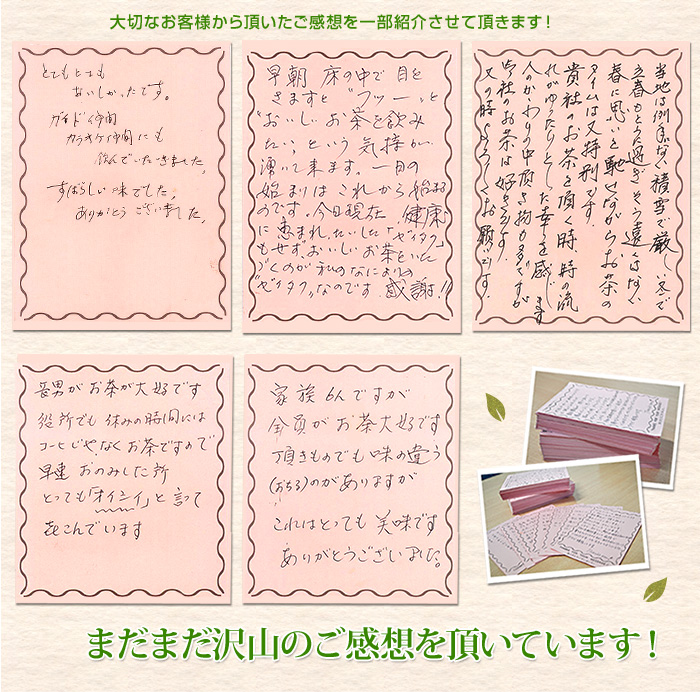 大切なお客様から頂いたご感想を一部紹介させて頂きます!
とてもとても
おいしかったです。
ガイド仲間
カラオケ仲間にも
飲んでいただきました。
すばらしい味でした。
ありがとうございました。
早朝 床の中で目を
きますと "フッー"と
"おいしいお茶を飲み
たい"という気持が
湧いて来ます。一日の
始まりはこれから始まる
のです。今日現在、健康
に恵まれ、たいした「ゼイタク」
もせず、おいしいお茶をいた
だくのが私のなによりの
"ゼイタク"なのです。感謝!!
当地は例年ない積雪で厳しい冬で
立春もとうに過ぎそう遠くはない
春に思いを馳せながらお茶の
タイムは又特別です。
貴社のお茶を頂く時、時の流
れがゆったりとした幸を感じます
人のかわりの中頂き物も多いですが
御社のお茶は好きです。
又の時よろしくお願いです。
長男がお茶が大好です
役所でも休みの時間には
コーヒじゃなくお茶ですので
早速 おのみした所
とっても「オイシイ」と言って
喜こんでいます
家族6人ですが
全員がお茶大好です
頂きものでも味の違う
(おちる)のがありますが
これはとっても美味です
ありがとうございました。
まだまだ沢山のご感想を頂いています!